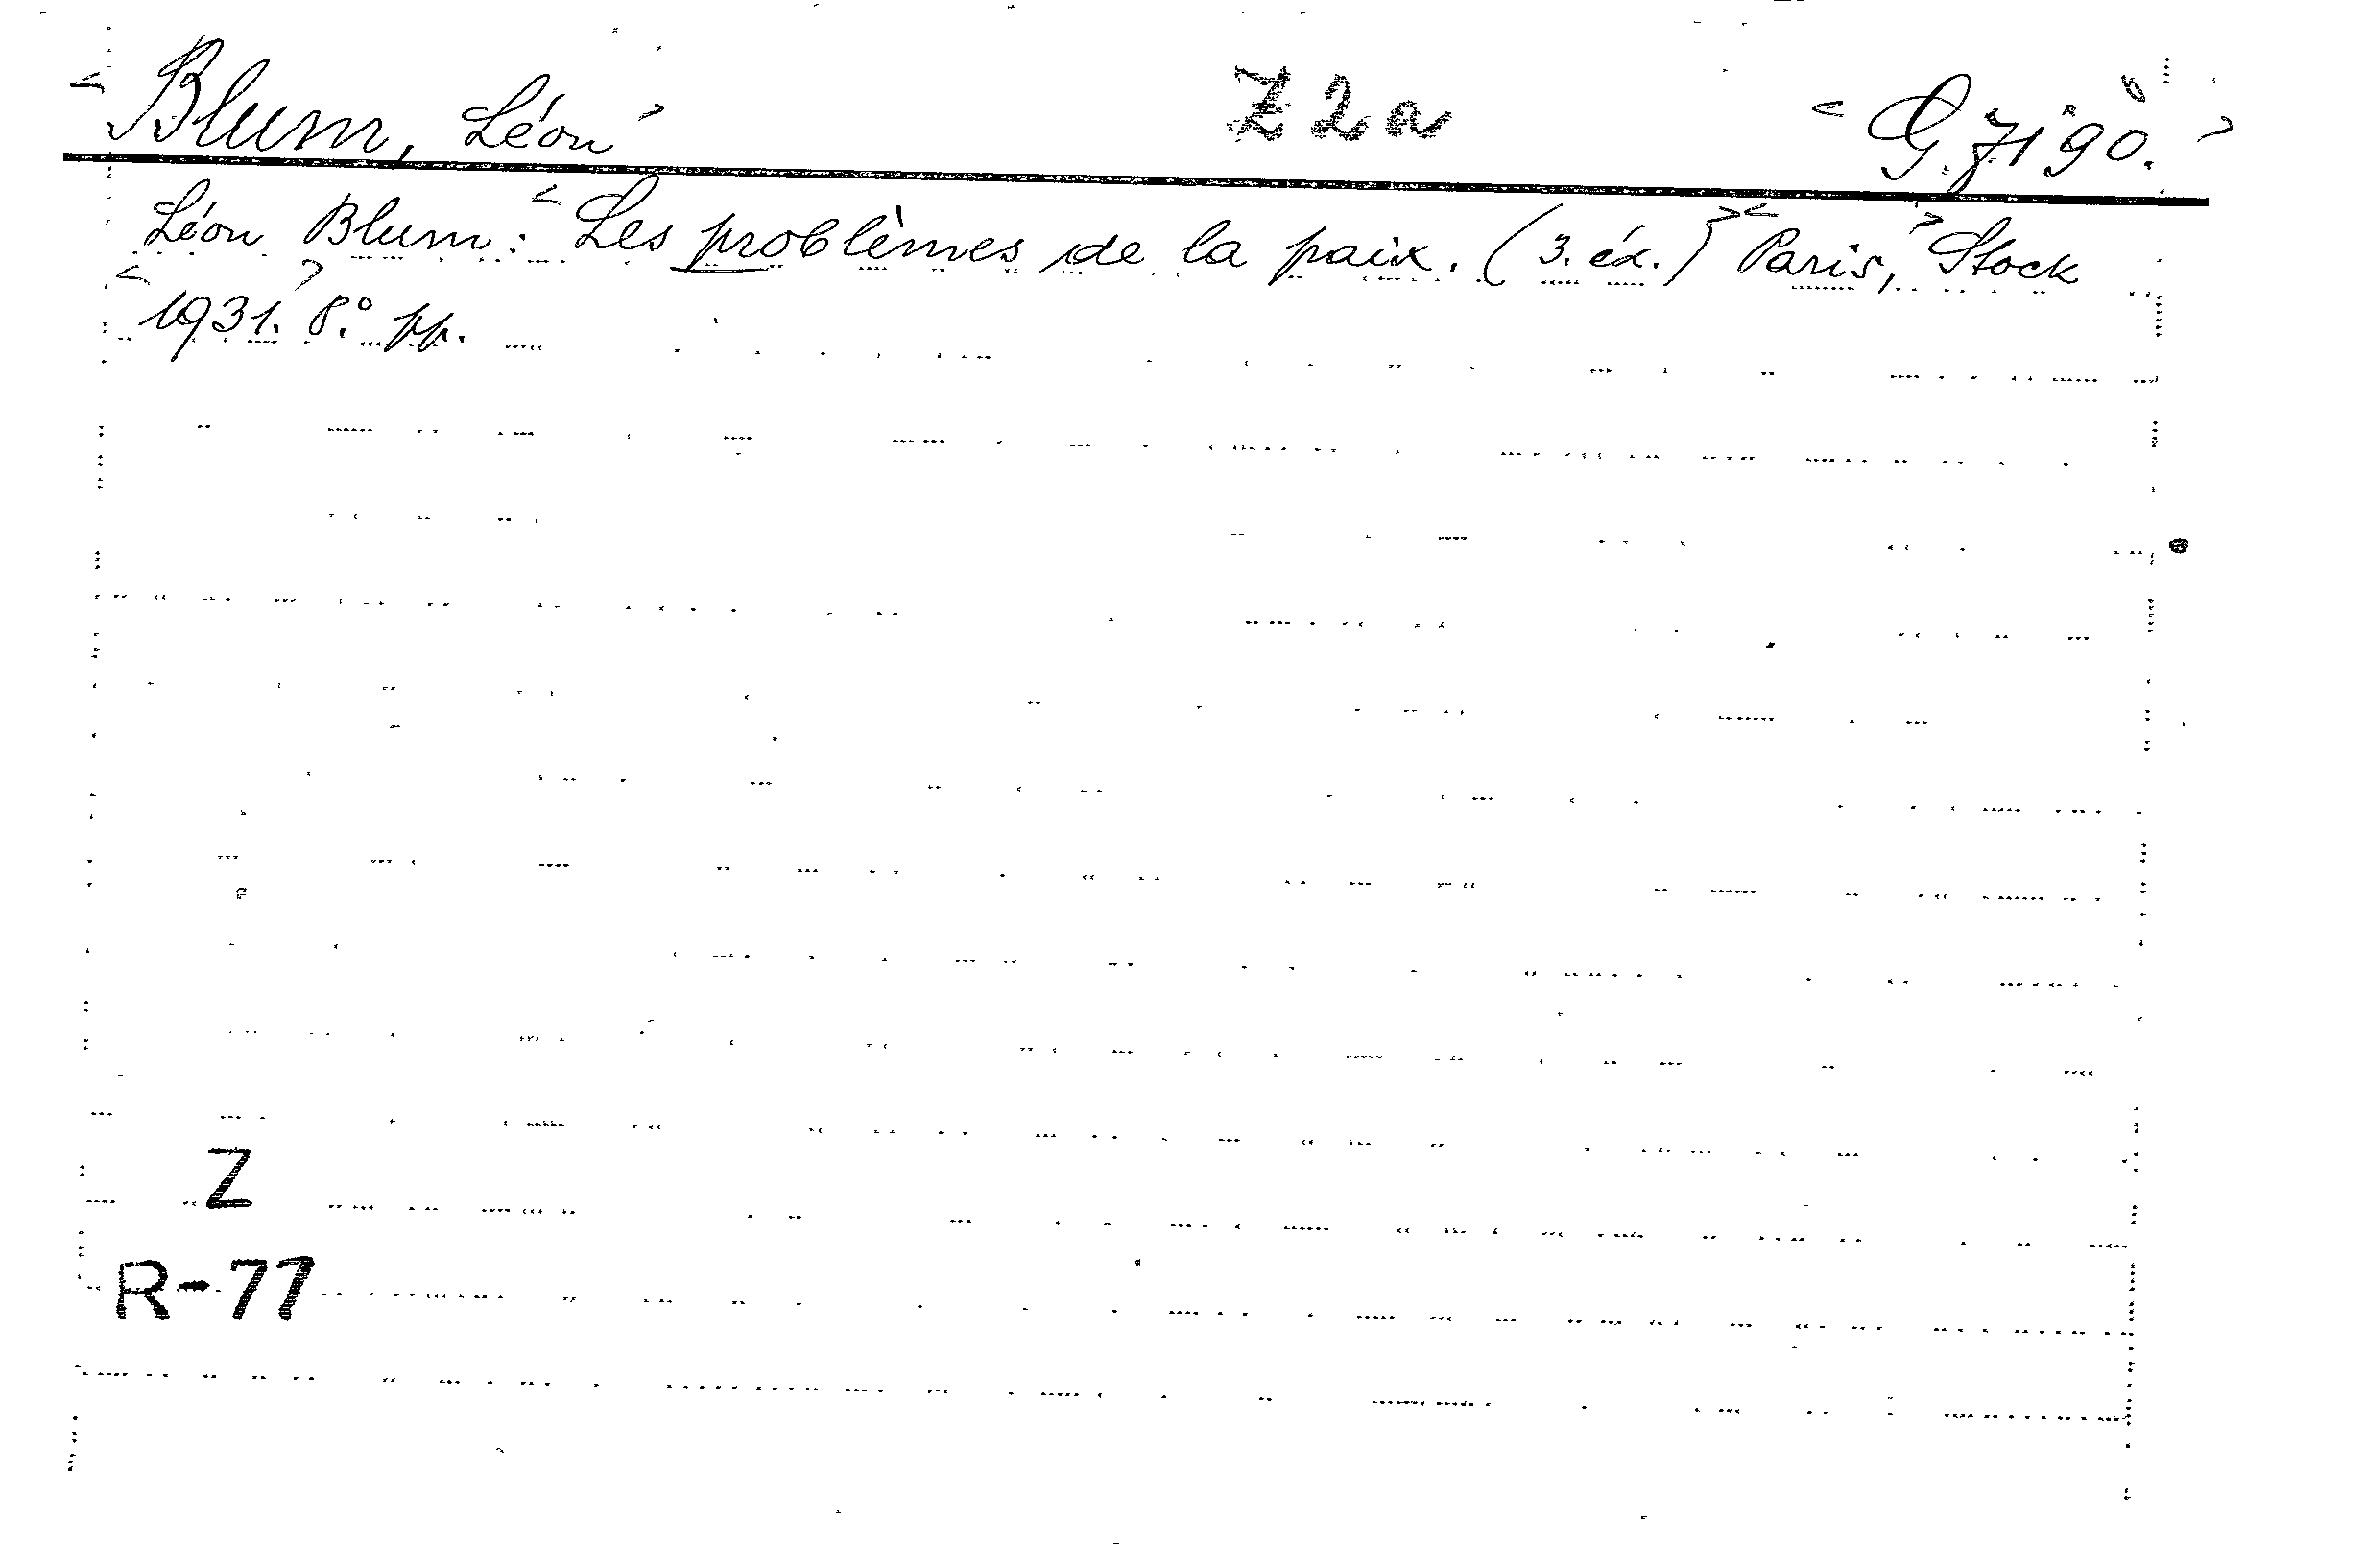 <Blum, Léon> Z2a <G.7190.>
Léon Blum: <Les problèmes de la paix. (3. éd.)> <Paris,> Stock
<1931.> 8.° pp.
Z
R-77